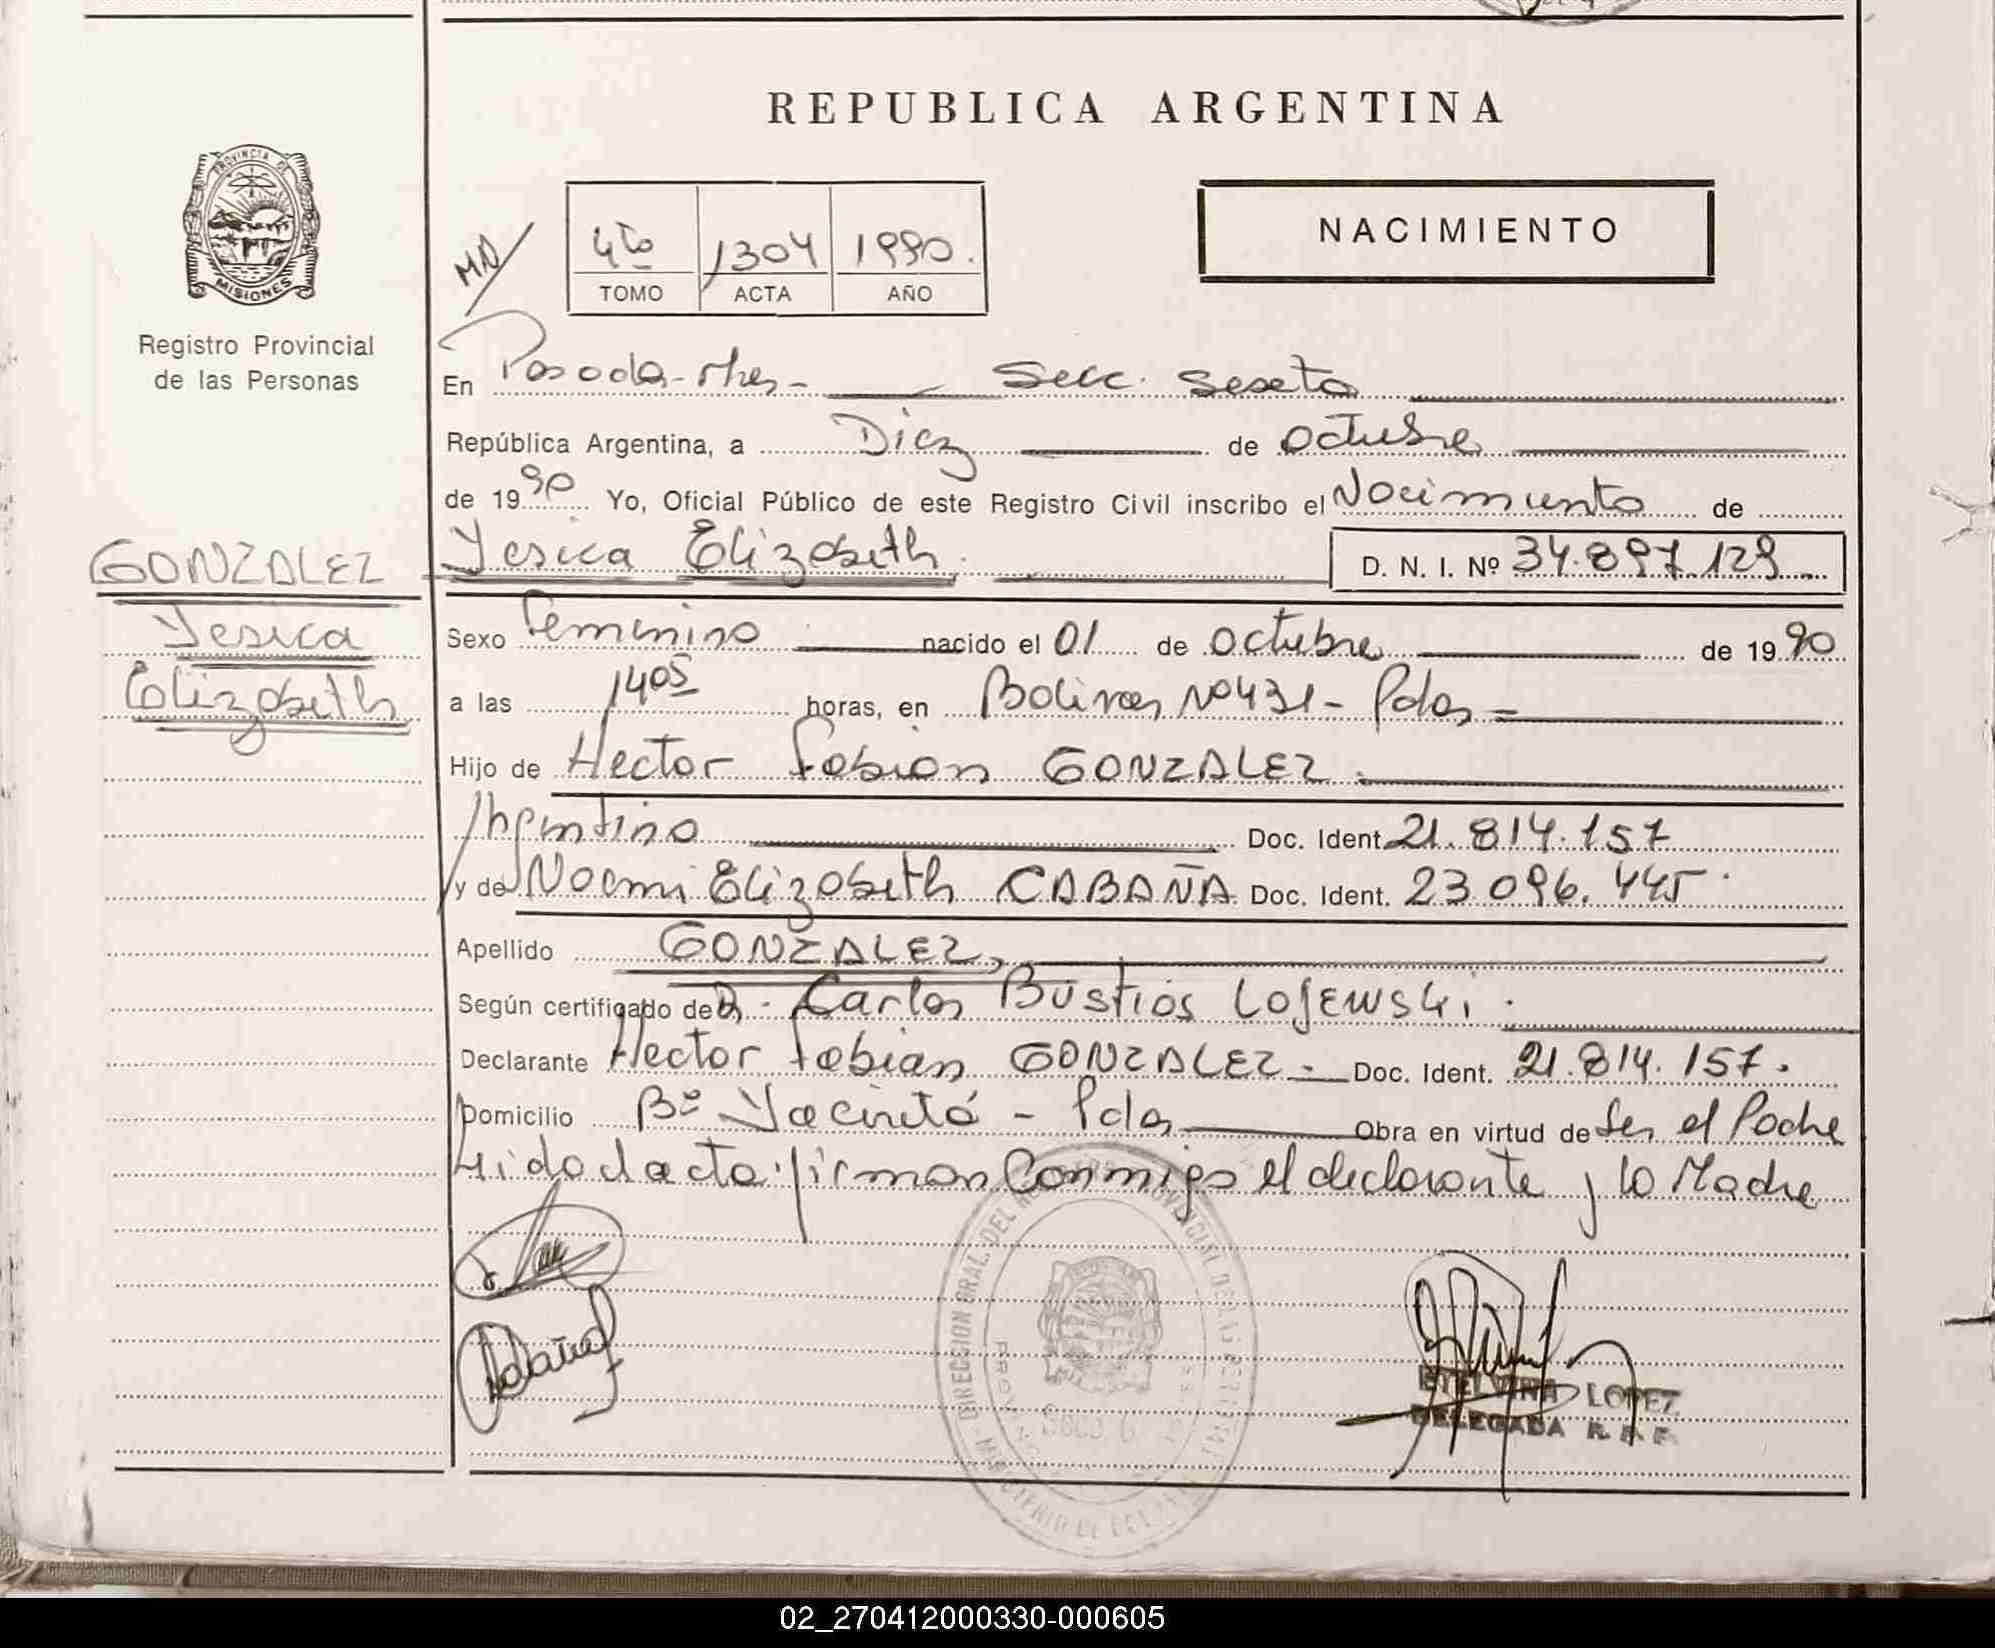 REPUBLICA ARGENTINA
PROVINCIA DE
MISIONES
Registro Provincial
de las Personas
MD/
4to 1304 1990.
TOMO ACTA AÑO
NACIMIENTO
En Posadas-Mnes- Secc. Sexta
República Argentina, a Diez de octubre
de 1990 Yo, Oficial Público de este Registro Civil inscribo el Nacimiento de
Yesica Elizabeth. D. N. I. Nº 34.897.129
GONZALEZ
Yesica
Elizabeth
Sexo Femenino nacido el 01 de octubre de 1990
a las 1405 horas, en Bolivar Nº 431 - Pdas -
Hijo de Hector Fabian GONZALEZ.
Argentino Doc. Ident. 21.814.157
y de Noemi Elizabeth CABAÑA Doc. Ident. 23.096.445.
Apellido GONZALEZ,
Según certificado de Dr. Carlos Bustios Lojewski.
Declarante Hector Fabian GONZALEZ. Doc. Ident. 21.814.157.
Domicilio Bº Yaciretá - Pdas Obra en virtud de Ser el Padre
Leida el acta firman Conmigo el declarante y la Madre
ETELVINA LOPEZ
DELEGADA R. P. P.
DIRECCION GRAL. DEL
02_270412000330-000605